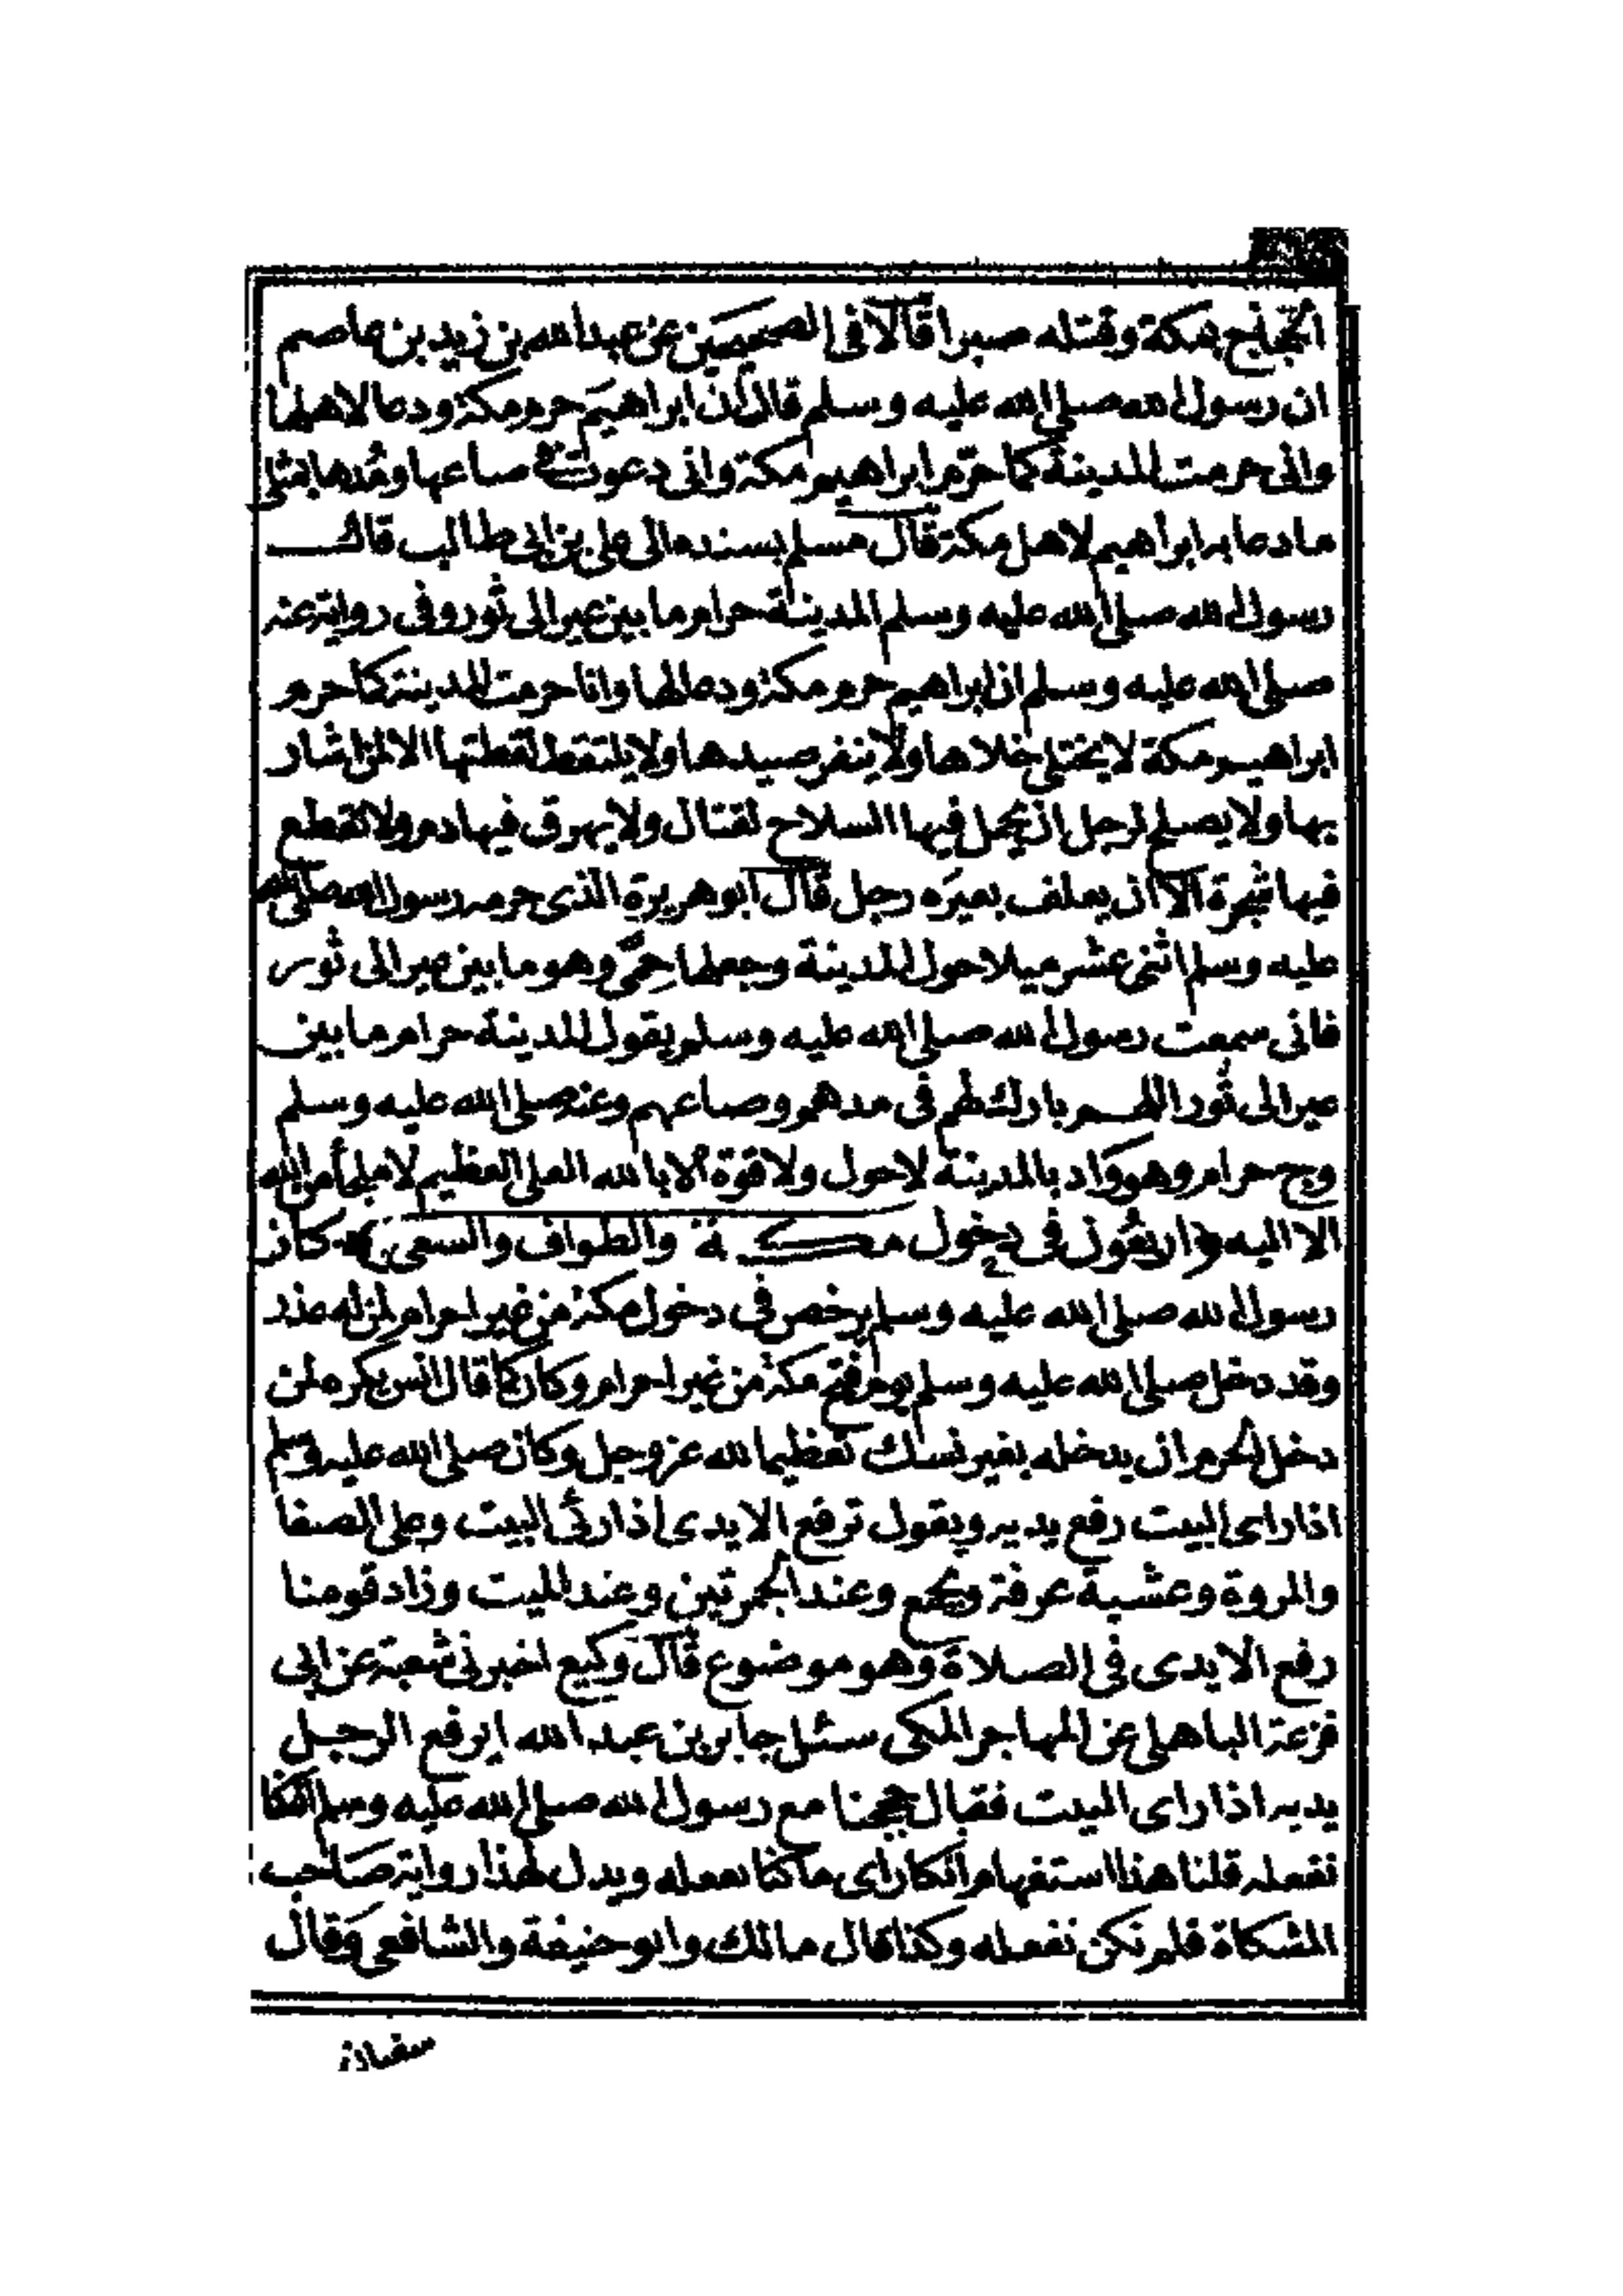 الحجاج بمكة وقتله صبرا قالا فى الصحيحين عن عبد الله بن زيد بن عاصم
ان رسول الله صلى الله عليه وسلم قال ان ابراهيم حرم مكة ودعا لاهلها
وانى حرمت المدينة كما حرم ابراهيم مكة وانى دعوت فى صاعها ومدها بمثلى
ما دعا به ابراهيم لاهل مكة قال مسلم بسنده الى على بن ابى طالب قال
رسول الله صلى الله عليه وسلم المدينة حرام ما بين عير الى ثور وفى رواية عنه
صلى الله عليه وسلم ان ابراهيم حرم مكة ودعا لها وانا حرمت المدينة كما حرم
ابراهيم مكة لا يختلى خلاها ولا ينفر صيدها ولا يلتقط لقطتها الا لمن اشار
بها ولا يصلح لرجل ان يحمل فيها السلاح لقتال ولا يهرق فيها دم ولا تقطع
فيها شجرة الا ان يعلف بعيره رجل قال ابو هريرة الذى حرمه رسول الله صلى الله
عليه وسلم اثنى عشر ميلا حول المدينة وجعلها حمى وهو ما بين عير الى ثور
فانى سمعت رسول الله صلى الله عليه وسلم يقول المدينة حرام ما بين
عير الى ثور اللهم بارك لهم فى مدهم وصاعهم وعنه صلى الله عليه وسلم
وج حرام وهو واد بالمدينة لا حول ولا قوة الا بالله العلى العظيم لا ملجأ من الله
الا اليه دخول مكة والطواف والسعى كان
رسول الله صلى الله عليه وسلم يرخص فى دخول مكة من غير احرام لمن له عذر
وقد دخل صلى الله عليه وسلم يوم فتح مكة من غير احرام وكان كما قال انس يكره لمن
دخل الحرم ان يدخله بغير نسك تعظيما لله عز وجل وكان صلى الله عليه وسلم
اذا راى البيت رفع يديه ويقول ترفع الايدى اذا رئى البيت وعلى الصفا
والمروة وعشية عرفة وبجمع وعند الجمرتين وعند الميت وزاد قومنا
رفع الايدى فى الصلاة وهو موضوع قال وكيع اخبرنى شعبة عن ابى
قزعة الباهلى عن المهاجر المكى سئل جابر بن عبد الله ايرفع الرجل
يديه اذا راى البيت فقال حججنا مع رسول الله صلى الله عليه وسلم افكنا
نفعله قلنا هذا استفهام انكار اى ما كنا نفعله ويدل لهذا رواية صاحب
المشكاة فلم نكن نفعله وكذا قال مالك وابو حنيفة والشافعى وقال
سفيان